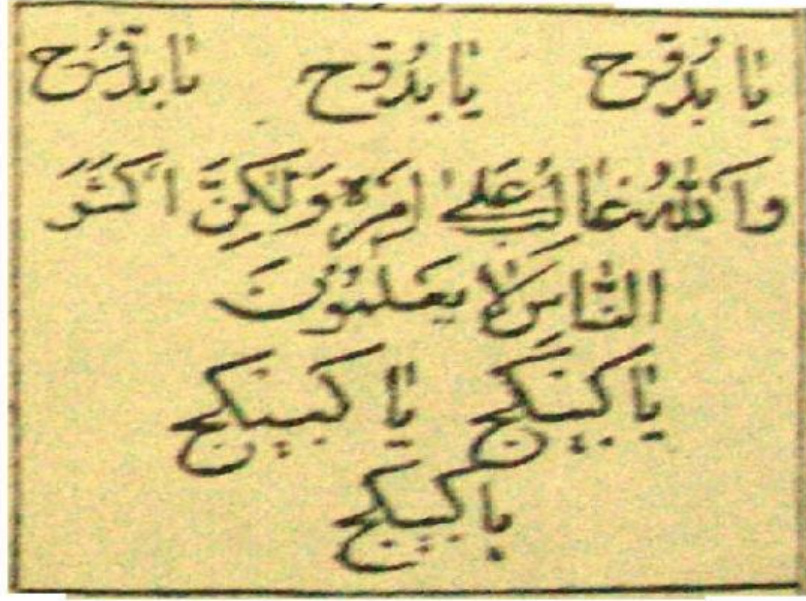 يا بُدّوح يا بدّوح يا بدّوح
وَاللّٰهُ غَالِبٌ عَلٰى اَمْرِهٖ وَلٰكِنَّ اَكْثَرَ
النَّاسِ لَا يَعْلَمُوْنَ
يا كبيكج يا كبيكج
يا كبيكج